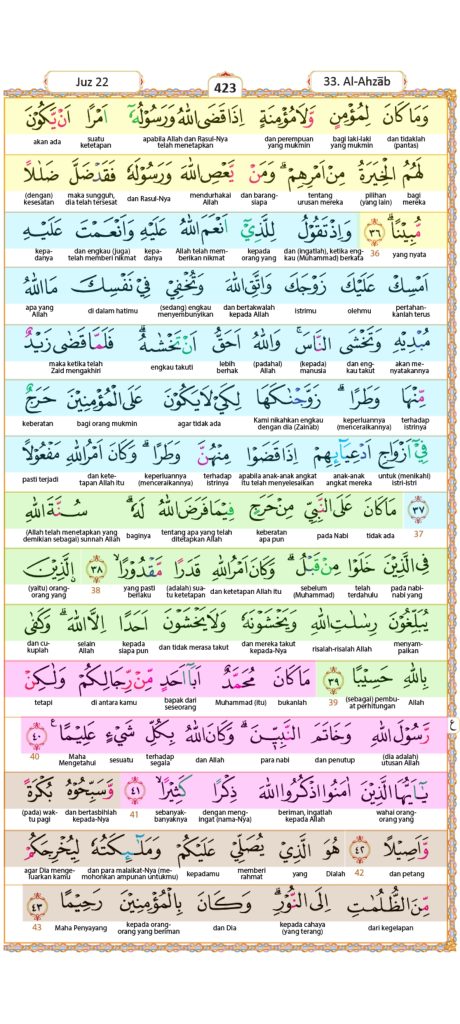 Juz 22
423
33. Al-Ahzāb
وَمَا كَانَ لِمُؤْمِنٍ وَّلَا مُؤْمِنَةٍ اِذَا قَضَى اللّٰهُ وَرَسُوْلُهٗٓ اَمْرًا اَنْ يَّكُوْنَ
dan tidaklah (pantas) bagi laki-laki yang mukmin dan perempuan yang mukmin apabila Allah dan Rasul-Nya telah menetapkan suatu ketetapan akan ada
لَهُمُ الْخِيَرَةُ مِنْ اَمْرِهِمْ ۗ وَمَنْ يَّعْصِ اللّٰهَ وَرَسُوْلَهٗ فَقَدْ ضَلَّ ضَلٰلًا
bagi mereka pilihan (yang lain) tentang urusan mereka dan barang-siapa mendurhakai Allah dan Rasul-Nya maka sungguh, dia telah tersesat (dengan) kesesatan
مُّبِيْنًاۗ ٣٦ وَاِذْ تَقُوْلُ لِلَّذِيْٓ اَنْعَمَ اللّٰهُ عَلَيْهِ وَاَنْعَمْتَ عَلَيْهِ
yang nyata 36 dan (ingatlah), ketika eng-kau (Muhammad) berkata kepada orang yang Allah telah mem-berikan nikmat kepa-danya dan engkau (juga) telah memberi nikmat kepa-danya
اَمْسِكْ عَلَيْكَ زَوْجَكَ وَاتَّقِ اللّٰهَ وَتُخْفِيْ فِيْ نَفْسِكَ مَا اللّٰهُ
pertahan-kanlah terus olehmu istrimu dan bertakwalah kepada Allah (sedang) engkau menyembunyikan di dalam hatimu apa yang Allah
مُبْدِيْهِ وَتَخْشَى النَّاسَۚ وَاللّٰهُ اَحَقُّ اَنْ تَخْشٰىهُ ۗ فَلَمَّا قَضٰى زَيْدٌ
akan me-nyatakannya dan eng-kau takut (kepada) manusia (padahal) Allah lebih berhak engkau takuti maka ketika telah Zaid mengakhiri
مِّنْهَا وَطَرًاۗ زَوَّجْنٰكَهَا لِكَيْ لَا يَكُوْنَ عَلَى الْمُؤْمِنِيْنَ حَرَجٌ
terhadap istrinya keperluannya (menceraikannya) Kami nikahkan engkau dengan dia (Zainab) agar tidak ada bagi orang mukmin keberatan
فِيْٓ اَزْوَاجِ اَدْعِيَاۤىِٕهِمْ اِذَا قَضَوْا مِنْهُنَّ وَطَرًاۗ وَكَانَ اَمْرُ اللّٰهِ مَفْعُوْلًا
untuk (menikahi) istri-istri anak-anak angkat mereka apabila anak-anak angkat itu telah menyelesaikan terhadap istrinya keperluannya (menceraikannya) dan kete-tapan Allah itu pasti terjadi
٣٧ مَا كَانَ عَلَى النَّبِيِّ مِنْ حَرَجٍ فِيْمَا فَرَضَ اللّٰهُ لَهٗ ۗ سُنَّةَ اللّٰهِ
37 tidak ada pada Nabi keberatan apa pun tentang apa yang telah ditetapkan Allah baginya (Allah telah menetapkan yang demikian sebagai) sunnah Allah
فِى الَّذِيْنَ خَلَوْا مِنْ قَبْلُ ۗ وَكَانَ اَمْرُ اللّٰهِ قَدَرًا مَّقْدُوْرًاۙ ٣٨ الَّذِيْنَ
pada nabi-nabi yang telah terdahulu sebelum (Muhammad) dan ketetapan Allah itu (adalah) sua-tu ketetapan yang pasti berlaku 38 (yaitu) orang-orang yang
يُبَلِّغُوْنَ رِسٰلٰتِ اللّٰهِ وَيَخْشَوْنَهٗ وَلَا يَخْشَوْنَ اَحَدًا اِلَّا اللّٰهَ ۗ وَكَفٰى
menyam-paikan risalah-risalah Allah dan mereka takut kepada-Nya dan tidak merasa takut kepada siapa pun selain Allah dan cu-kuplah
بِاللّٰهِ حَسِيْبًا ٣٩ مَا كَانَ مُحَمَّدٌ اَبَآ اَحَدٍ مِّنْ رِّجَالِكُمْ وَلٰكِنْ
Allah (sebagai) pembu-at perhitungan 39 bukanlah Muhammad (itu) bapak dari seseorang di antara kamu tetapi
رَّسُوْلَ اللّٰهِ وَخَاتَمَ النَّبِيّٖنَۗ وَكَانَ اللّٰهُ بِكُلِّ شَيْءٍ عَلِيْمًا ٤٠ ع
(dia adalah) utusan Allah dan penutup para nabi dan Allah terhadap segala sesuatu Maha Mengetahui 40
يٰٓاَيُّهَا الَّذِيْنَ اٰمَنُوا اذْكُرُوا اللّٰهَ ذِكْرًا كَثِيْرًاۙ ٤١ وَّسَبِّحُوْهُ بُكْرَةً
wahai orang-orang yang beriman, ingatlah kepada Allah dengan meng-ingat (nama-Nya) sebanyak-banyaknya 41 dan bertasbihlah kepada-Nya (pada) wak-tu pagi
وَّاَصِيْلًا ٤٢ هُوَ الَّذِيْ يُصَلِّيْ عَلَيْكُمْ وَمَلٰۤىِٕكَتُهٗ لِيُخْرِجَكُمْ
dan petang 42 Dialah yang memberi rahmat kepadamu dan para malaikat-Nya (me-mohonkan ampunan untukmu) agar Dia menge-luarkan kamu
مِّنَ الظُّلُمٰتِ اِلَى النُّوْرِۗ وَكَانَ بِالْمُؤْمِنِيْنَ رَحِيْمًا ٤٣
dari kegelapan kepada cahaya (yang terang) dan Dia kepada orang-orang yang beriman Maha Penyayang 43